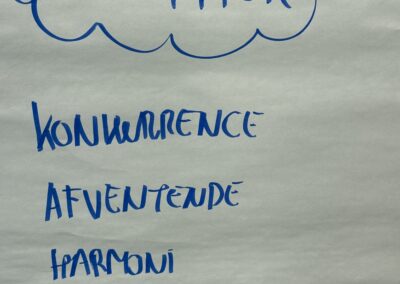 KONKURRENCE
AFVENTENDE
HARMONI